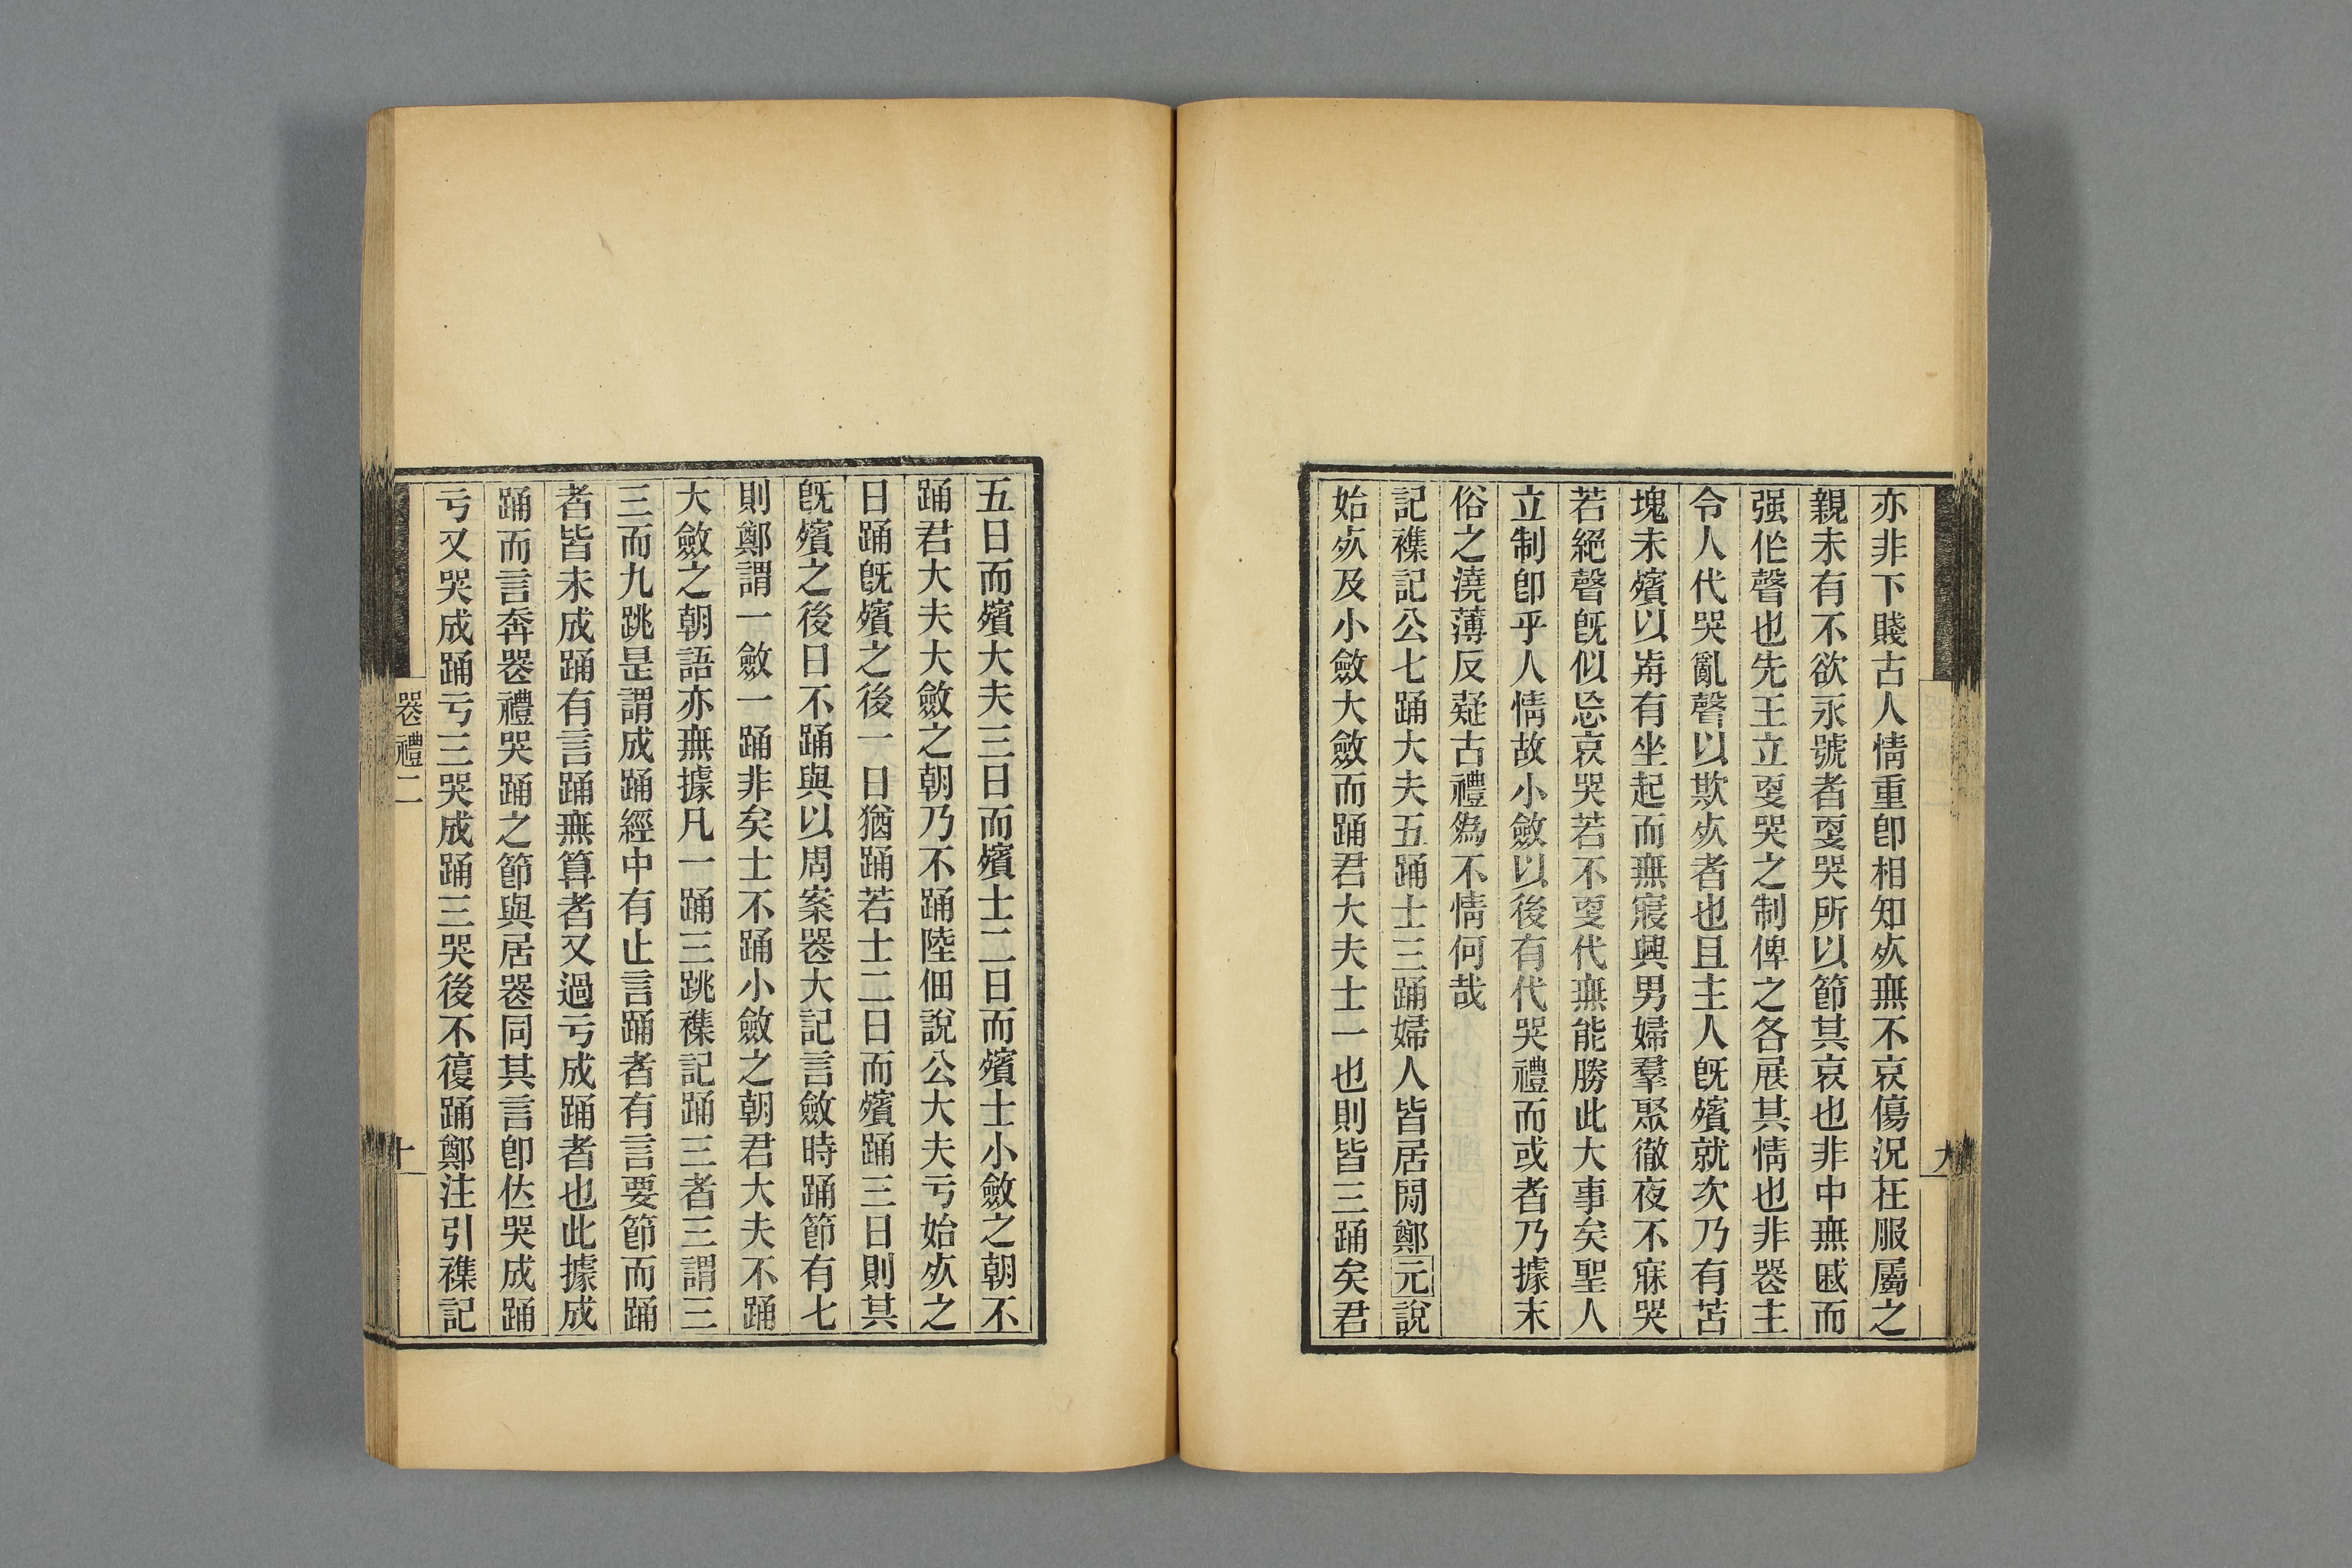 亦非下賤古人情重卽相知㱙無不哀傷況在服屬之
親未有不欲永號者㪅哭所以節其哀也非中無戚而
强作聲也先王立㪅哭之制俾之各展其情也非器主
令人代哭亂聲以欺㱙者也且主人旣殯就次乃有苫
塊未殯以歬有坐起而無寢興男婦羣聚徹夜不寐哭
若絕聲旣似忘哀哭若不㪅代無能勝此大事矣聖人
立制卽乎人情故小斂以後有代哭禮而或者乃據末
俗之澆薄反疑古禮爲不情何哉
記襍記公七踊大夫五踊士三踊婦人皆居閒鄭元說
始㱙及小斂大斂而踊君大夫士一也則皆三踊矣君
五日而殯大夫三日而殯士二日而殯士小斂之朝不
踊君大夫大斂之朝乃不踊陸佃說公大夫亏始㱙之
日踊旣殯之後一日猶踊若士二日而殯踊三日則其
旣殯之後日不踊與以周案器大記言斂時踊節有七
則鄭謂一斂一踊非矣士不踊小斂之朝君大夫不踊
大斂之朝語亦無據凡一踊三跳襍記踊三者三謂三
三而九跳是謂成踊經中有止言踊者有言要節而踊
者皆未成踊有言踊無算者又過亏成踊者也此據成
踊而言奔器禮哭踊之節與居器同其言卽位哭成踊
亏又哭成踊亏三哭成踊三哭後不復踊鄭注引襍記
器禮二
十